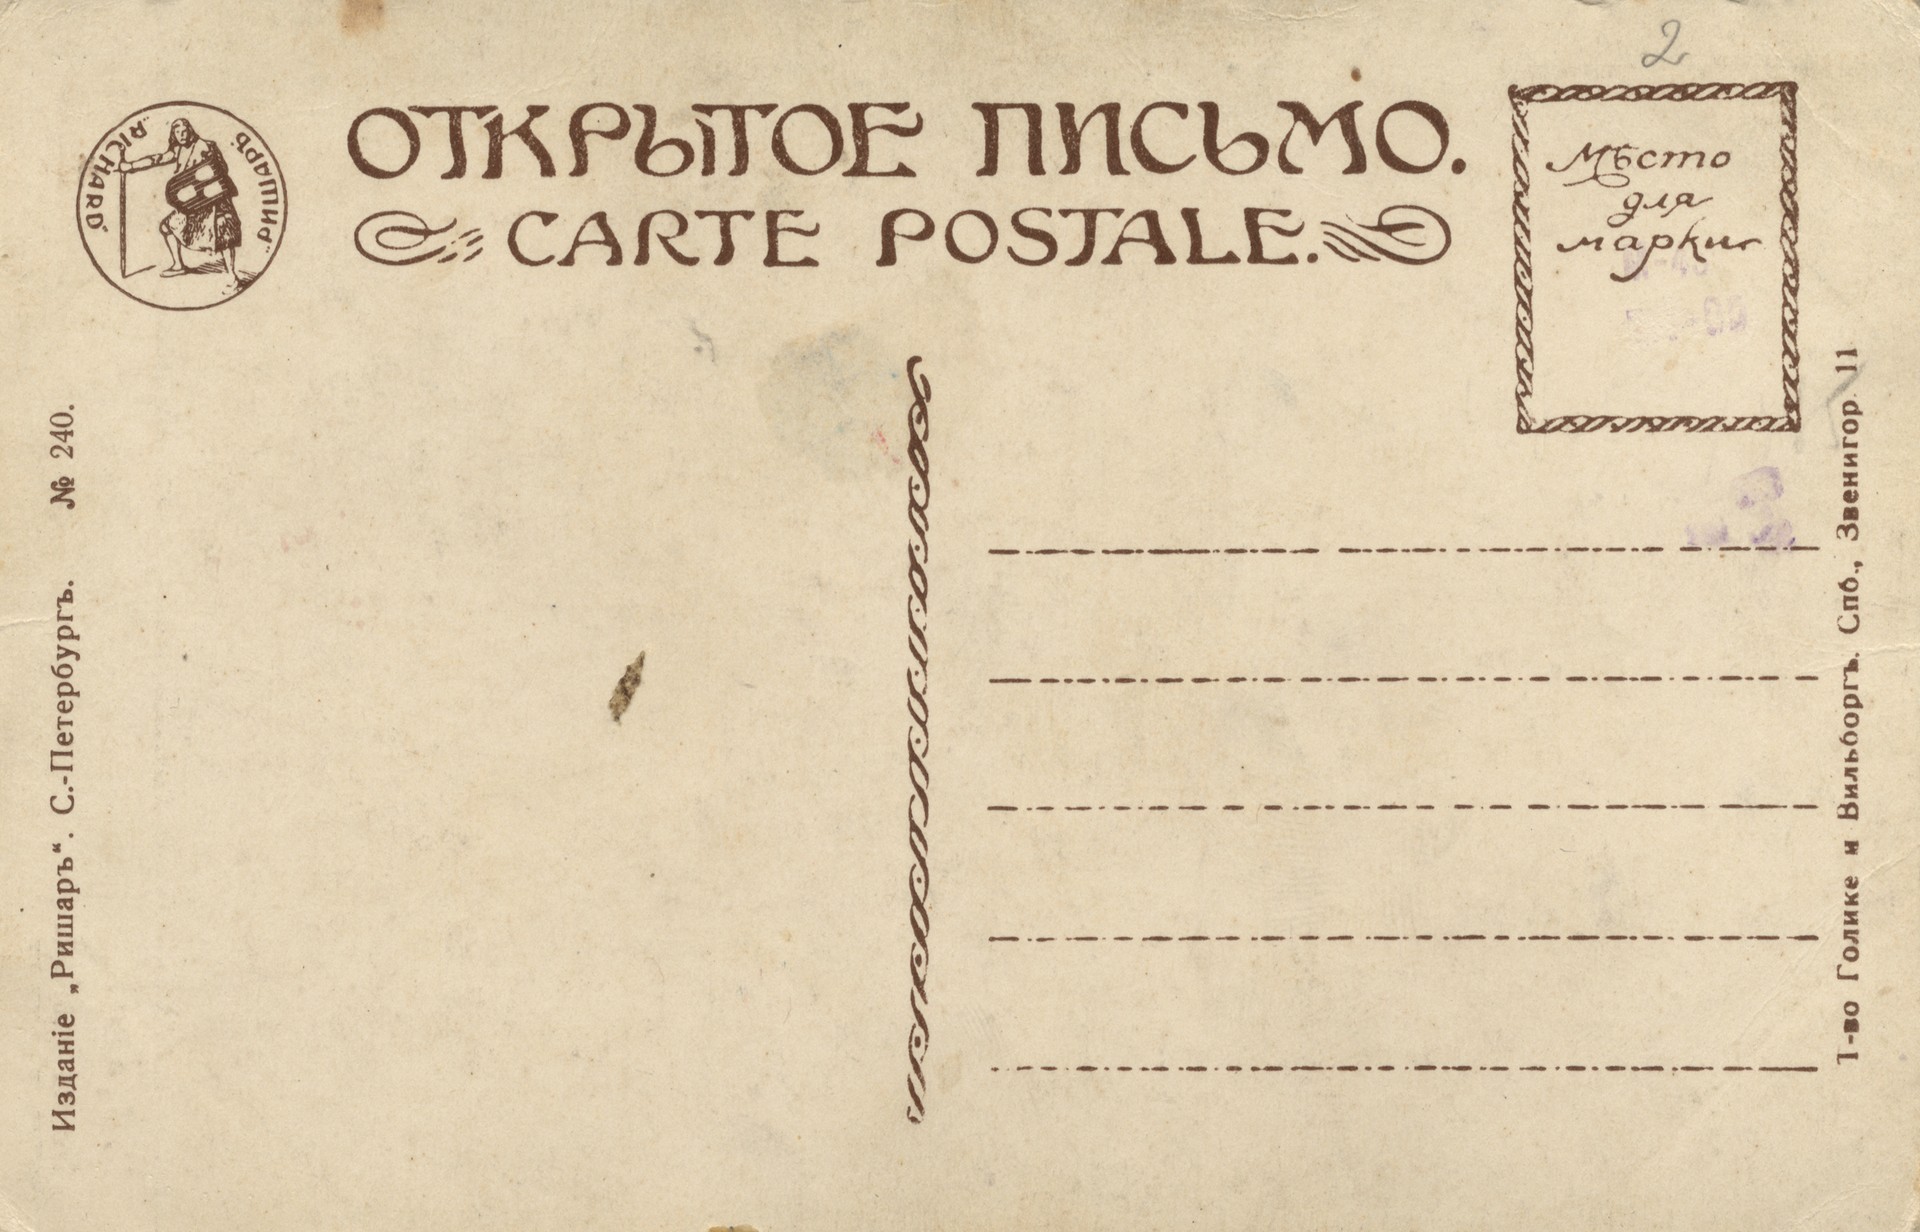 2
ОТКРЫТОЕ ПИСЬМО.
CARTE POSTALE.
„RICHARD“
„РИШАРЪ“
Мѣсто
для
марки
Изданіе „Ришаръ“. С.-Петербургъ. № 240.
Т-во Голике и Вильборгъ. Спб., Звенигор. 11